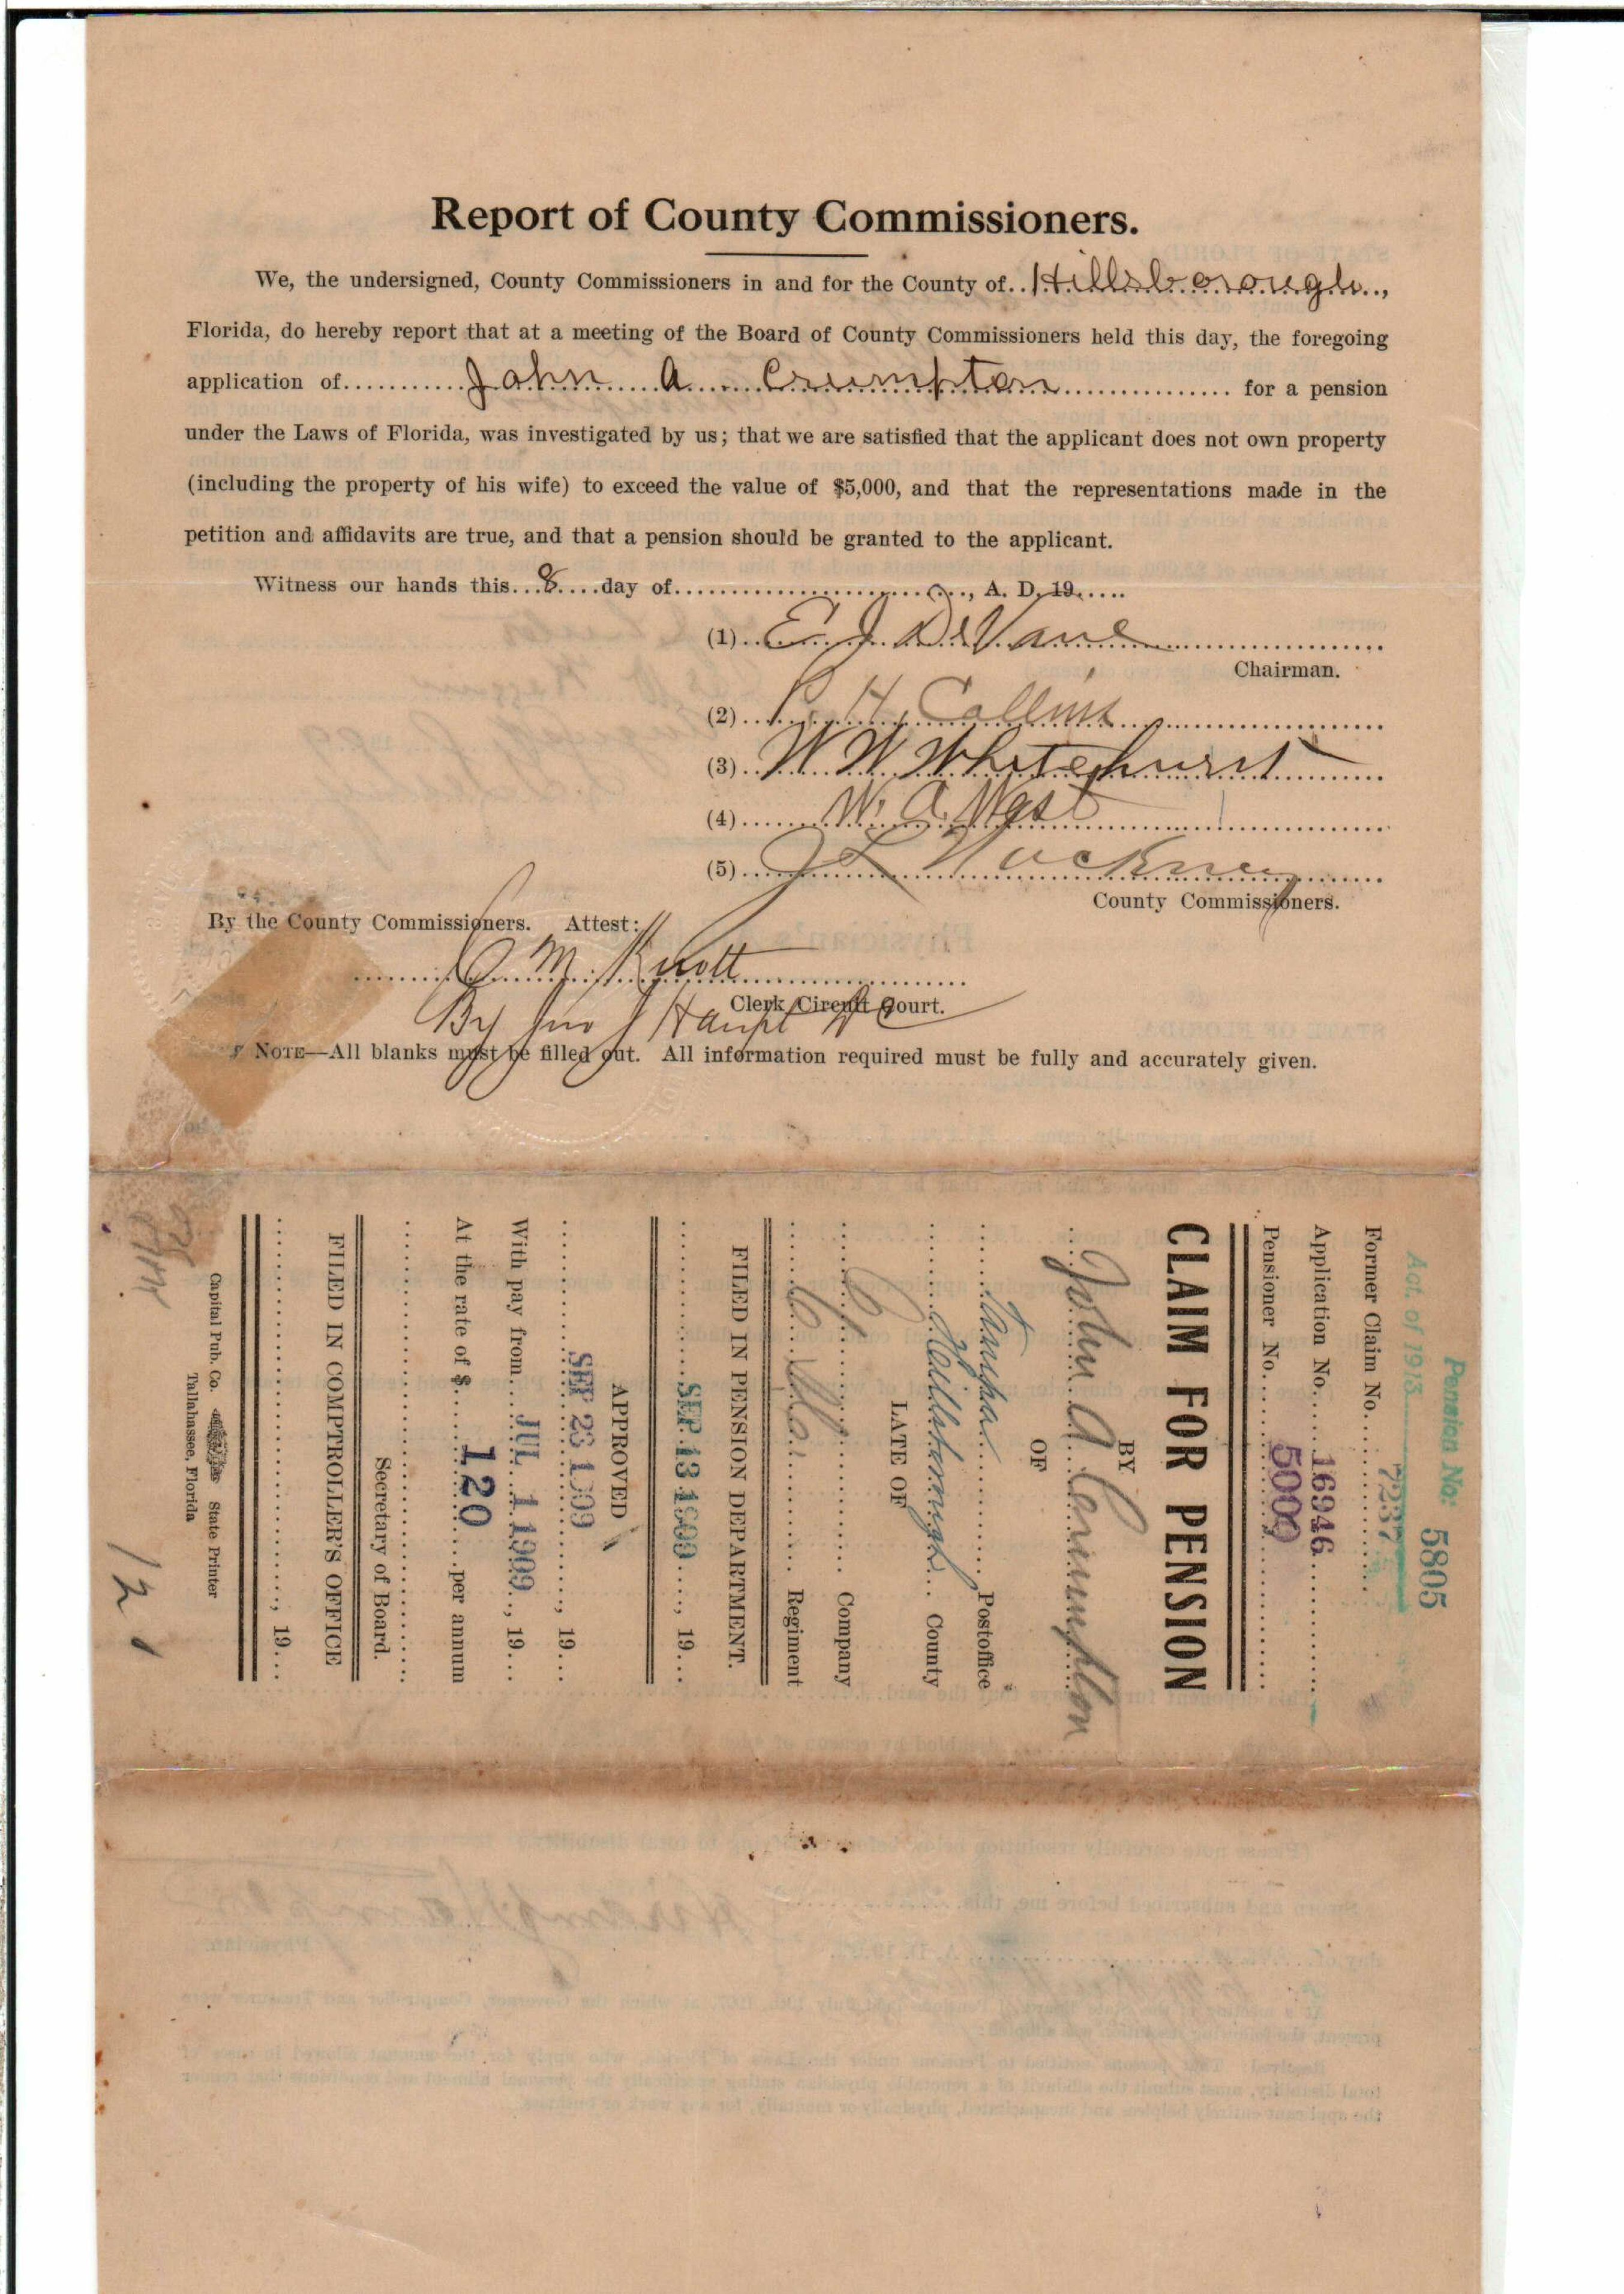 Report of County Commissioners.
We, the undersigned, County Commissioners in and for the County of..Hillsborough..,
Florida, do hereby report that at a meeting of the Board of County Commissioners held this day, the foregoing
application of...........John A Crumpton................ for a pension
under the Laws of Florida, was investigated by us; that we are satisfied that the applicant does not own property
(including the property of his wife) to exceed the value of $5,000, and that the representations made in the
petition and affidavits are true, and that a pension should be granted to the applicant.
Witness our hands this...8....day of............................, A. D. 19.....
(1)..E J DeVane
Chairman.
(2).. H. Collins
(3)..W W Whitehurst
(4)......W. A. West
(5)..J L Hackney
County Commissioners.
By the County Commissioners. Attest:
C. M. Knott
Clerk Circuit Court.
By Jno J Haupt D C
NOTE—All blanks must be filled out. All information required must be fully and accurately given.
Pension No: 5805
Act. of 1913
Former Claim No. 7237
Application No. 16946
Pensioner No. 5000
CLAIM FOR PENSION
BY
John A Crumpton
OF
Tampa Postoffice
Hillsborough County
LATE OF
C Company
6 Regiment
FILED IN PENSION DEPARTMENT.
SEP 13 1909, 19...
APPROVED
SEP 23 1909, 19...
With pay from JUL 1 1909, 19...
At the rate of $ 120 per annum
Secretary of Board.
FILED IN COMPTROLLER'S OFFICE
, 19...
Capital Pub. Co. State Printer
Tallahassee, Florida
12